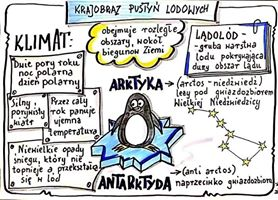 KRAJOBRAZ PUSTYŃ LODOWYCH
KLIMAT:
Dwie pory roku
noc polarna
dzień polarny
Silny,
porywisty
wiatr
Przez cały
rok panuje
ujemna
temperatura
Niewielkie opady
śniegu, który nie
topnieje a przekształca
się w lód
obejmuje rozległe
obszary, wokół
biegunów Ziemi
LĄDOLÓD-
-gruba warstwa
lodu pokrywająca
duży obszar lądu
ARKTYKA
(arctos - niedźwiedź)
leży pod gwiazdozbiorem
Wielkiej Niedźwiedzicy
ANTARKTYDA
(anti arctos)
naprzeciwko gwiazdozbioru